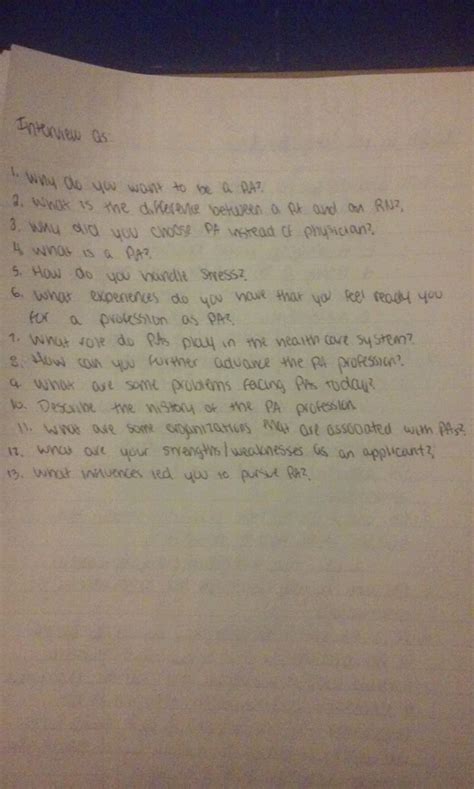 Interview Qs:
1. Why do you want to be a PA?
2. What is the difference between a PA and an RN?
3. Why did you choose PA instead of physician?
4. What is a PA?
5. How do you handle stress?
6. What experiences do you have that you feel ready you
for a profession as PA?
7. What role do PAs play in the health care system?
8. How can you further advance the PA profession?
9. What are some problems facing PAs today?
10. Describe the history of the PA profession
11. What are some organizations that are associated with PAs?
12. What are your strengths/weaknesses as an applicant?
13. What influences led you to pursue PA?